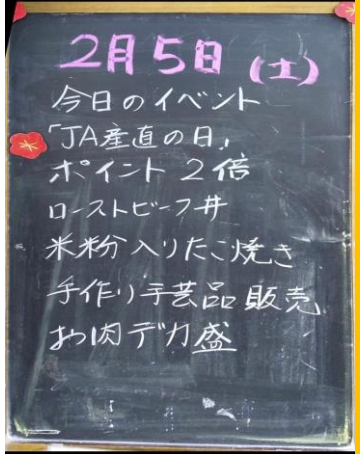 2月5日(土)
今日のイベント
「JA産直の日」
ポイント2倍
ローストビーフ丼
米粉入りたこ焼き
手作り手芸品販売
お肉デカ盛